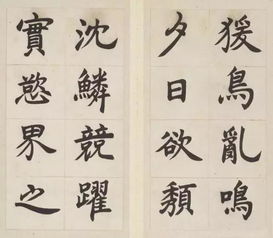 猨鳥亂鳴
夕日欲頹
沈鱗競躍
實慾界之